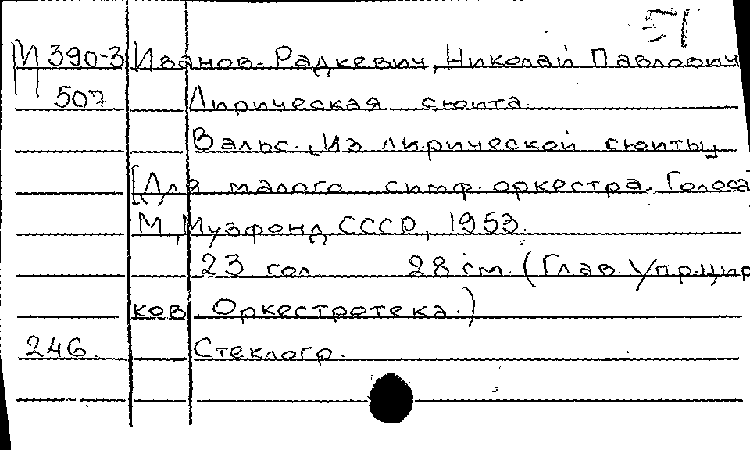 51
М 390-3 Иванов-Радкевич, Николай Павлович
507 Лирическая сюита.
Вальс. Из лирической сюиты
[Для малого симф. оркестра. Голоса
М., Музфонд СССР, 1953.
23 гол 28 см. (Глав Упр.цир
ков Оркестротека.)
246. Стеклогр.